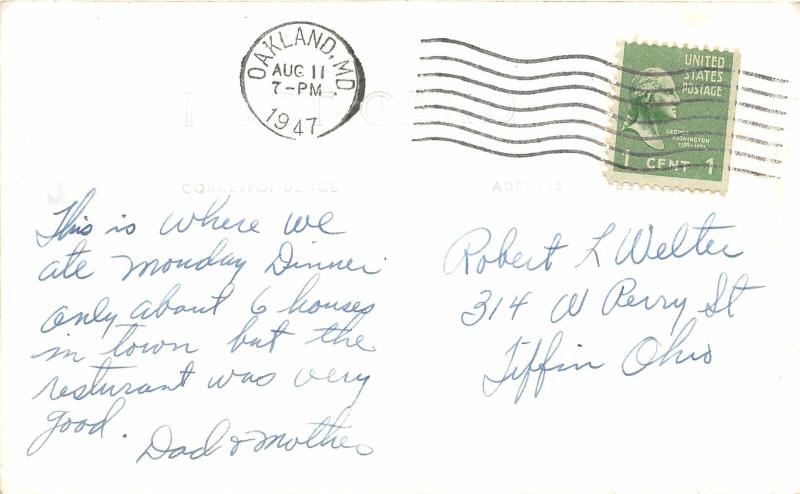 OAKLAND, MD.
AUG 11
7-PM
1947
UNITED
STATES
POSTAGE
GEORGE
WASHINGTON
1789-1797
1 CENT 1
POST CARD
CORRESPONDENCE
ADDRESS
This is where we
ate Monday Dinner
only about 6 houses
in town but the
resturant was very
good.
Dad & Mother
Robert L Welter
314 W Perry St
Tiffin Ohio